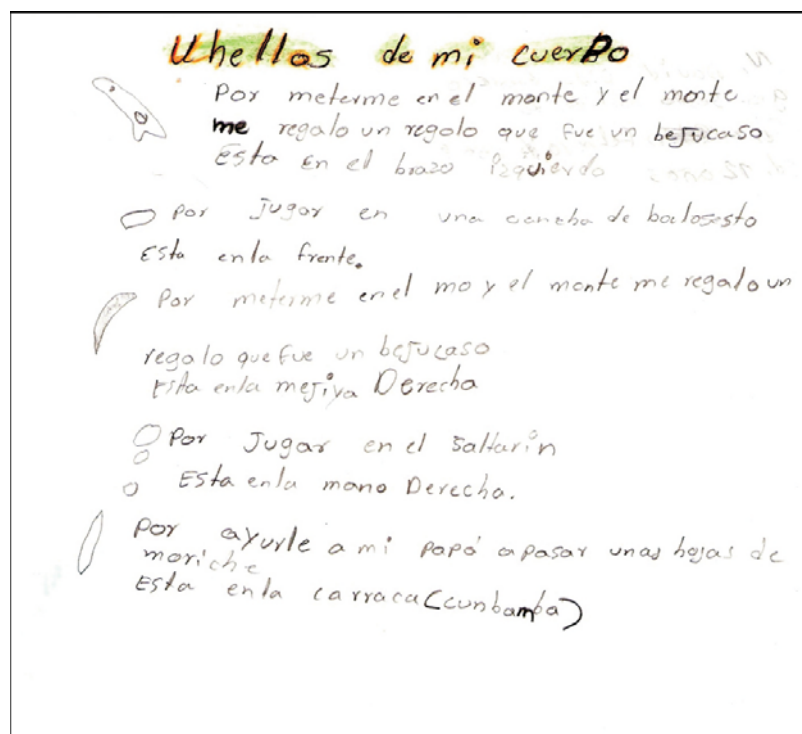 Uhellos de mi cuerpo
Por meterme en el monte y el monte
me regalo un regolo que fue un befucaso
Esta en el brazo izquierdo
Por Jugar en una cancha de balosesto
Esta enla frente.
Por meterme enel mo y el monte me regalo un
regalo que fue un befucaso
Esta enla mejiya Derecha
Por Jugar en el Saltarin
Esta enla mano Derecha.
Por ayurle a mi papá apasar unas hojas de
moriche
Esta enla carraca (cunbamba)